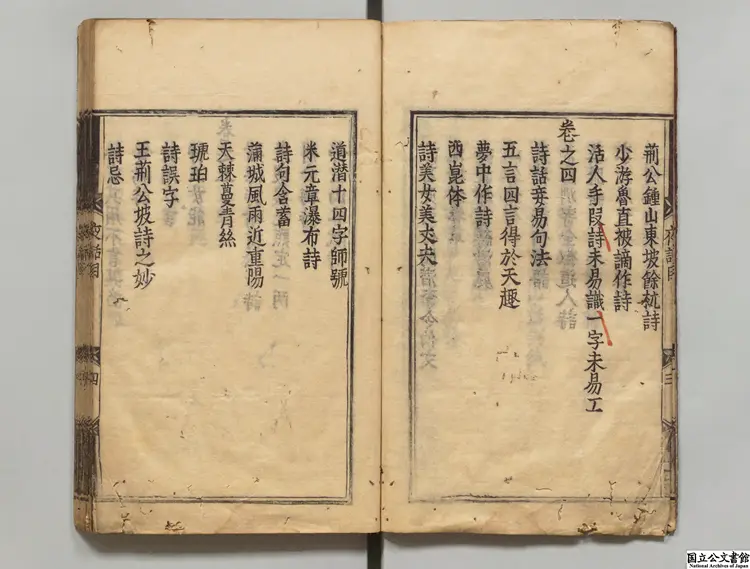 夜話目
三
荊公鍾山東坡餘杭詩
少游魯直被謫作詩
活人手段詩未易識一字未易工
卷之四
詩話妄易句法
五言四言得於天趣
夢中作詩
西崑体
詩美女美丈夫
道潜十四字師號
米元章瀑布詩
詩句含蓄
滿城風雨近重陽
天棘蔓青絲
琥珀
詩誤字
王荊公坡詩之妙
詩忌
夜話目
四
国立公文書館
National Archives of Japan